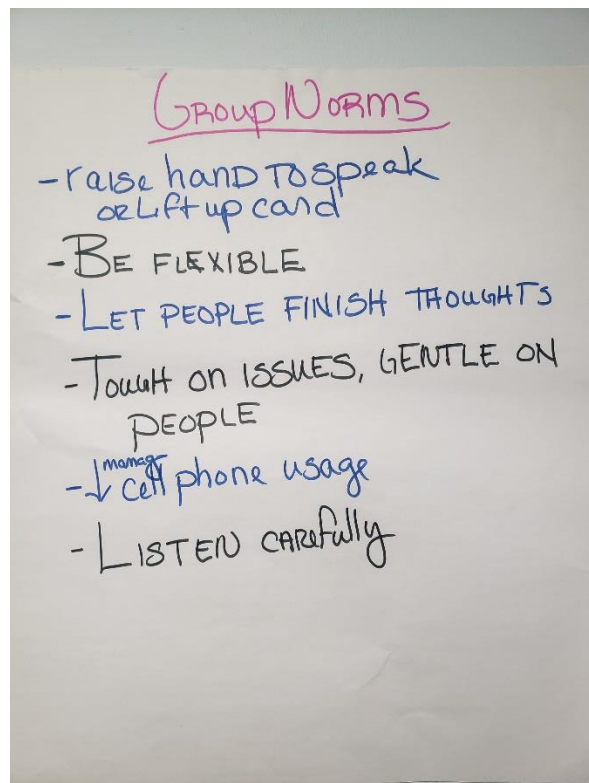 GROUP NORMS
- raise hand to speak
or lift up card
- BE FLEXIBLE
- LET PEOPLE FINISH THOUGHTS
- TOUGH ON ISSUES, GENTLE ON
PEOPLE
- ↓ manag cell phone usage
- LISTEN CAREfully